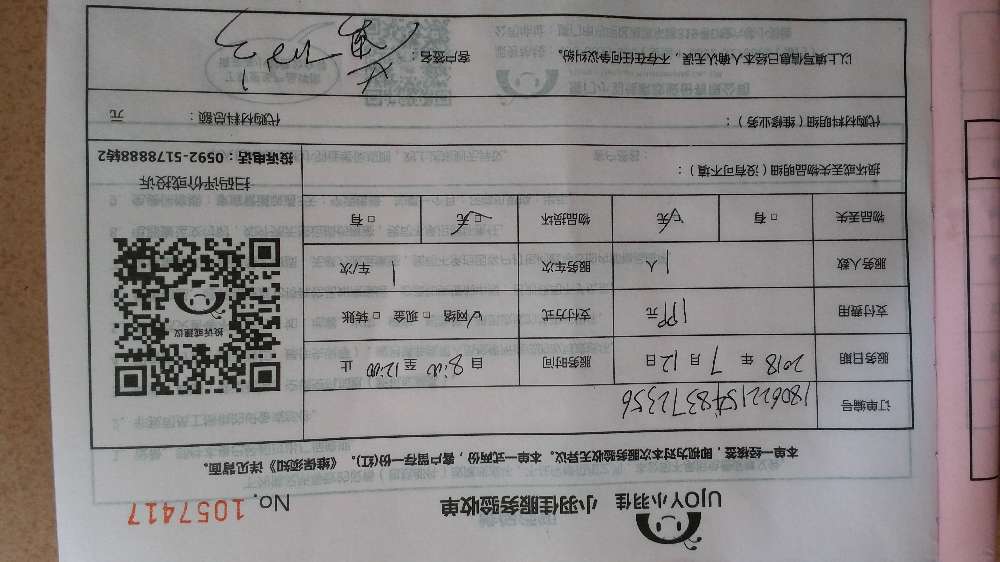 UJOY小羽佳 小羽佳服务验收单 No. 1057417
本单一经核签，即视为对本次服务验收无异议。本单一式两份，客户留存一份(红)。《维保须知》详见背面。
订单编号 1806221548372356
服务日期 2018 年 7 月 12 日 服务时间 自 8:00 至 12:00 止
支付费用 199 元 支付方式 ☑网络 □ 现金 □ 转账
服务人数 1 人 服务车次 1 车/次
物品丢失 □ 有 ☑无 物品损坏 ☑无 □ 有
投诉或建议
损坏或丢失物品明细（没有可不填）：
扫码评价或投诉
投诉电话：0592-5178888转2
代购材料明细（维修业务）： 代购材料总额： 元
以上填写信息已经本人确认无误，不存在任何争议纠纷。 客户签名：